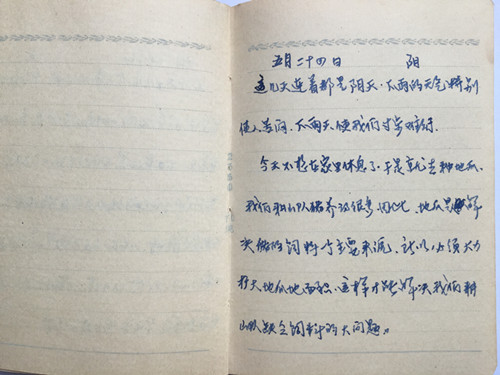 五月二十四日 阴
这几天连着都是阴天.下雨的天气特别
使人苦闷.下雨天使我们寸步难行.
今天不想在家里休息了.于是就去种地瓜.
我们耕山队猪养的很多 因此,地瓜是解
决猪的饲料于主要来源,所以必须大力
扩大地瓜地面积.这样才能解决我们耕
山队缺乏饲料的大问题。